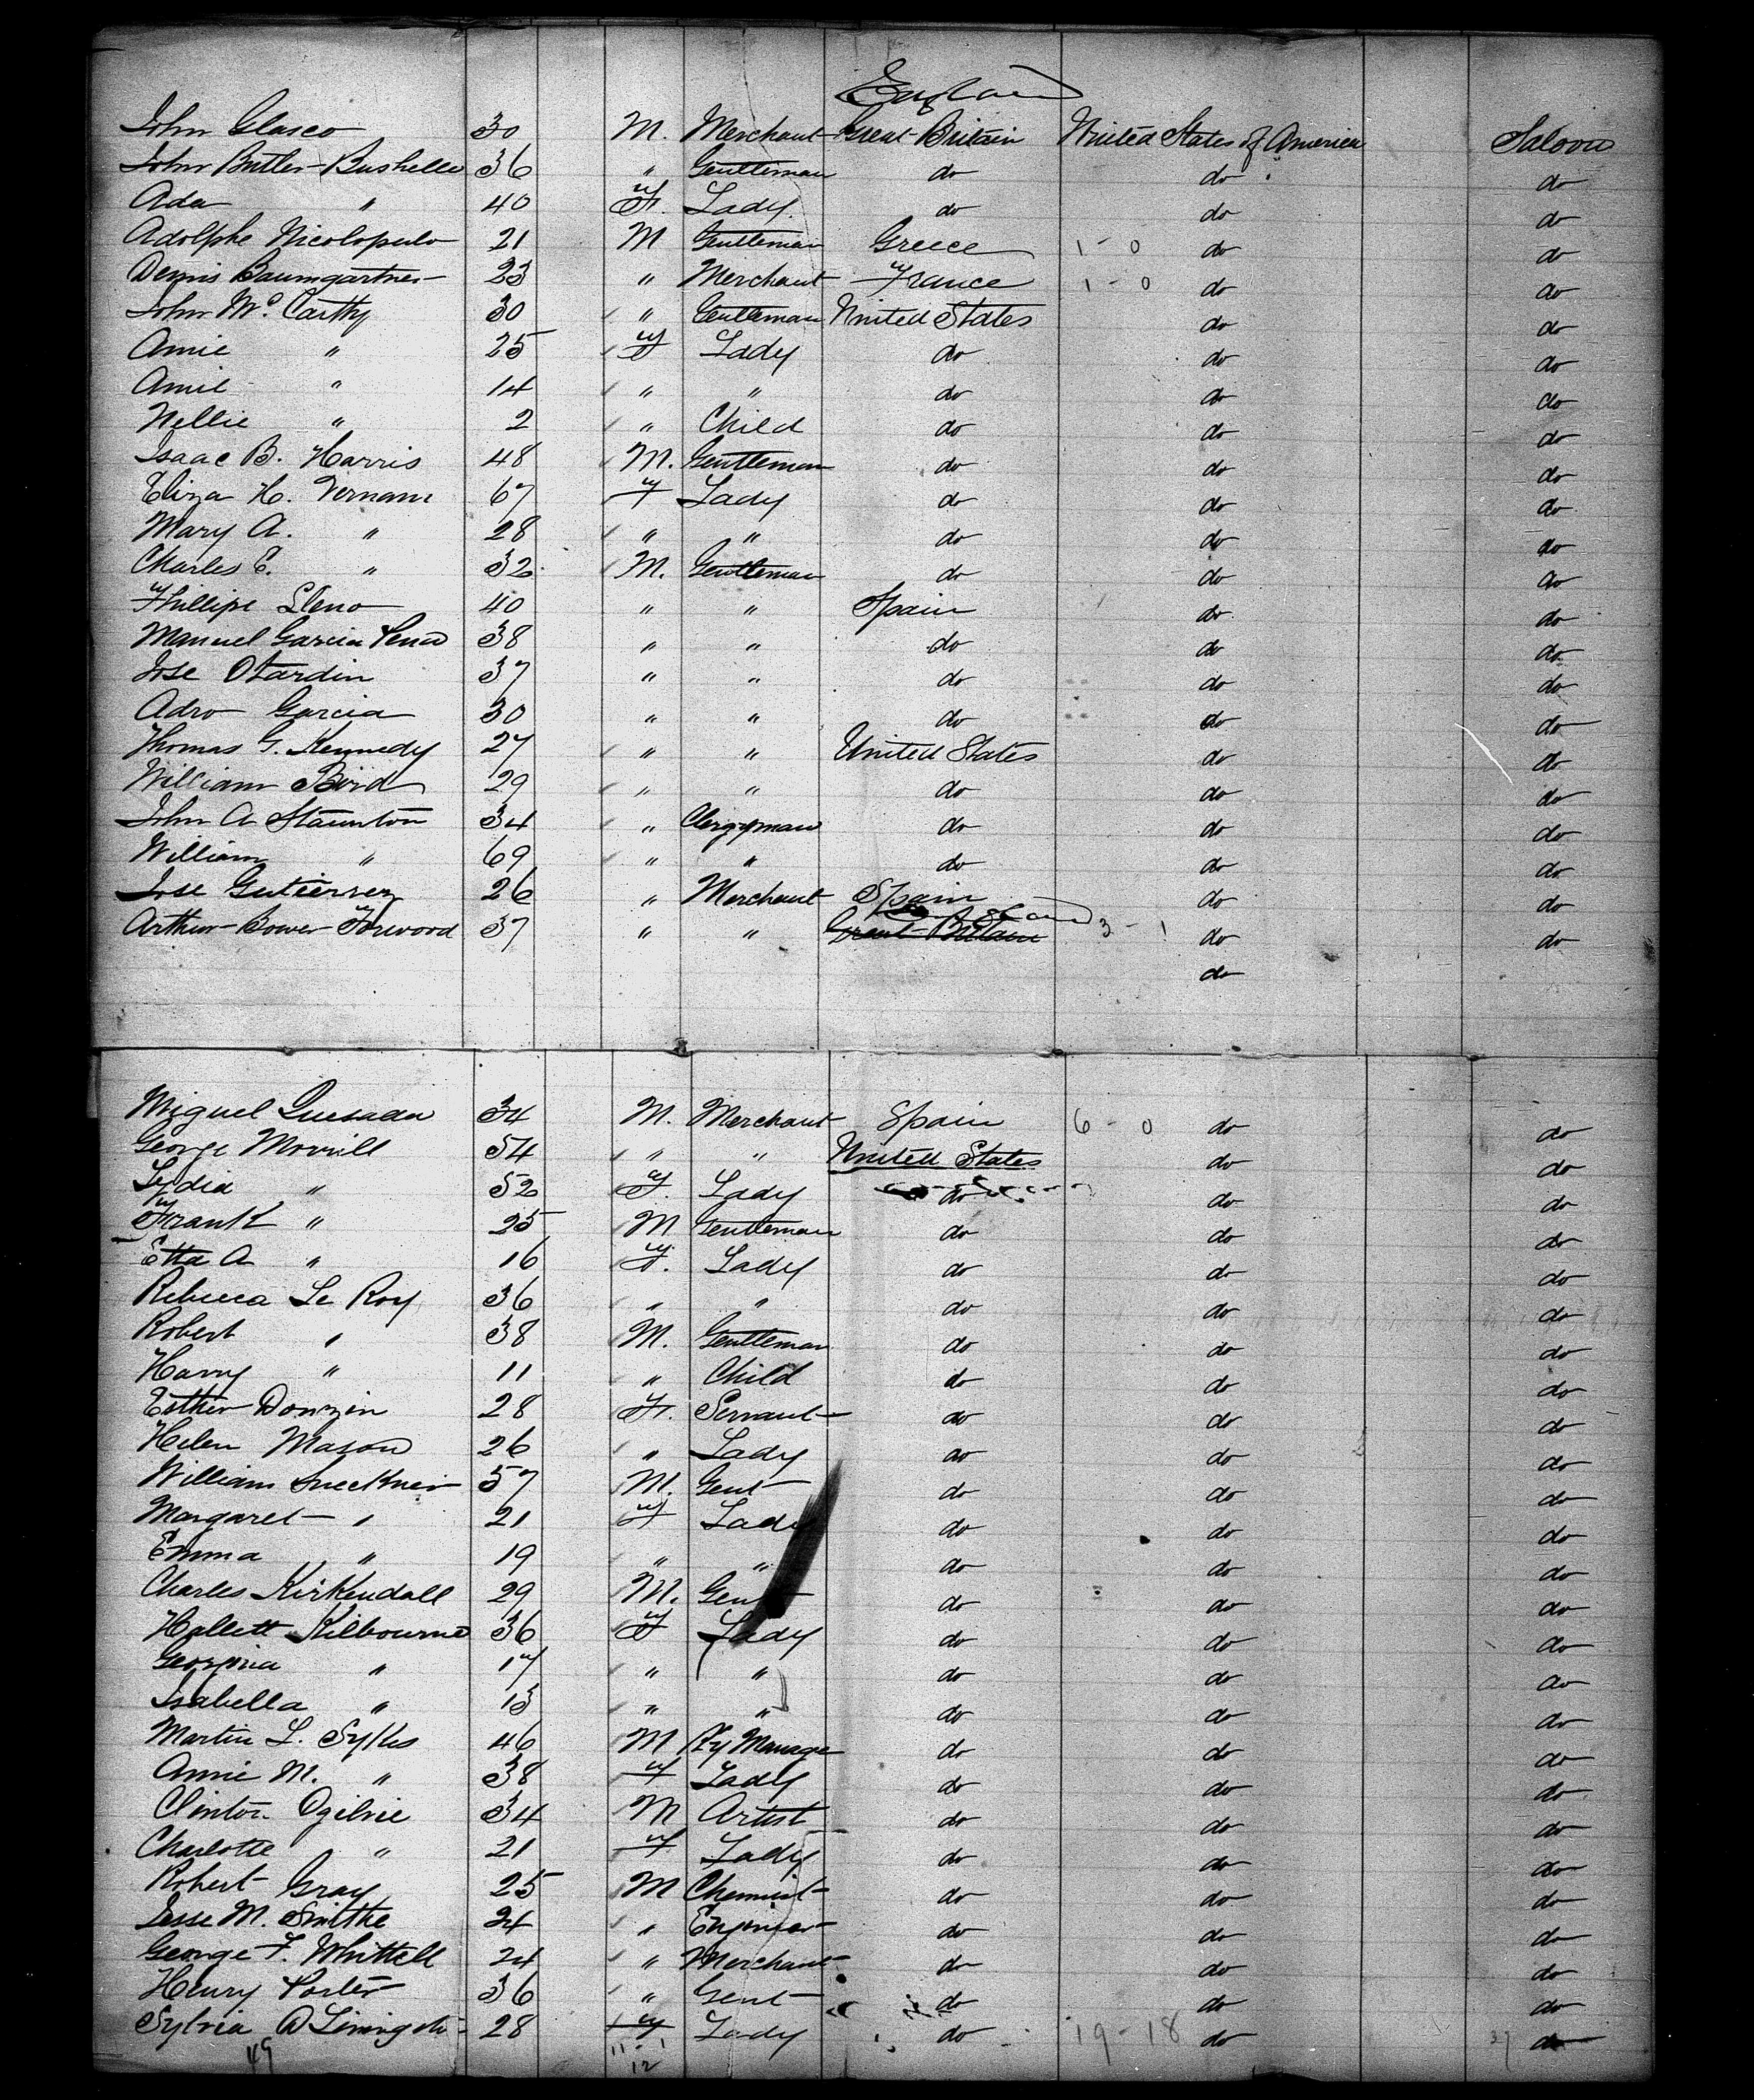 England
John Glasco 30 M. Merchant Great Britain United States of America Saloon
John Butler Bushelle 36 " Gentleman do do do
Ada " 40 F. Lady. do do do
Adolphe Nicolopulo 21 M Gentleman Greece 1 - 0 do do
Dennis Baumgartner 23 " Merchant France 1 - 0 do do
John Mc. Carthy 30 " Gentleman United States do do
Amie " 25 F Lady do do do
Amie " 14 " " do do do
Nellie " 2 " Child do do do
Isaac B. Harris 48 M. Gentleman do do do
Eliza H. Vernam 67 F Lady do do do
Mary A. " 28 " " do do do
Charles E. " 32 M. Gentleman do do do
Phillipe Lleno 40 " " Spain do do
Manuel Garcia 38 " " do do do
Jose Otardin 37 " " do do do
Adro Garcia 30 " " do do do
Thomas G. Kennedy 27 " " United States do do
William Bird 29 " " do do do
John A Staunton 34 " Clergyman do do do
William " 69 " " do do do
Jose Gutierrez 26 " Merchant Spain do do
Arthur Bower Forwood 37 " " Great Britain 3 - 1 do do
do
Miguel Quesada 34 M. Merchant Spain 6 - 0 do do
George Morrill 54 " " United States do do
Lydia " 52 F. Lady do do do
Frank " 25 M Gentleman do do do
Etta A " 16 F. Lady do do do
Rebecca Le Roy 36 " " do do do
Robert " 38 M. Gentleman do do do
Harry " 11 " Child do do do
Esther Donzin 28 F. Servant do do do
Helen Mason 26 " Lady do do do
William 57 M. Gent do do do
Margaret " 21 F Lady do do do
Emma " 19 " " do do do
Charles Kirkendall 29 M. Gent do do do
Hallett Kilbourne 36 F Lady do do do
Georgina " 17 " " do do do
Isabella " 13 " " do do do
Martin L. Sykes 46 M Ry Manage do do do
Annie M. " 38 F Lady do do do
Clinton Ogilvie 34 M Artist do do do
Charlotte " 21 F Lady do do do
Robert Gray 25 M Chemist do do do
Jesse M. Smithe 24 " Engineer do do do
George F. Whittell 24 " Merchant do do do
Henry Porter 36 " Gent do do do
Sylvia A Livingsto 28 F Lady do 19 - 18 do 37 do
49 11 - 1
12